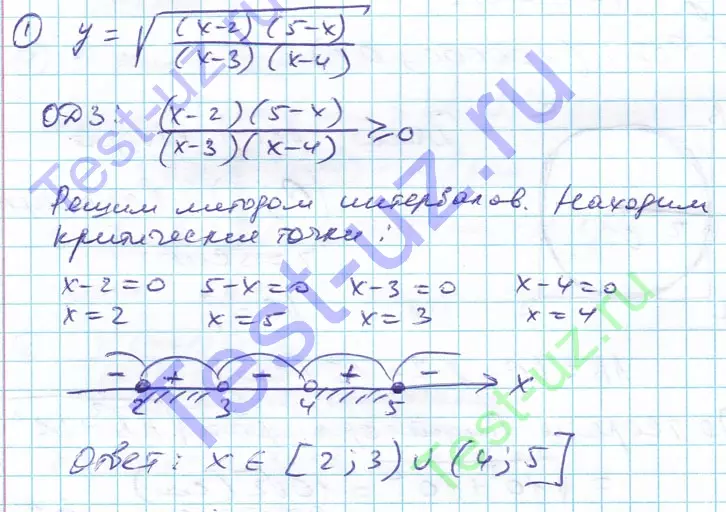 ① y = √((x-2)(5-x) / (x-3)(x-4))
ОДЗ: (x-2)(5-x) / (x-3)(x-4) ≥ 0
Решим методом интервалов. Находим
критические точки:
x-2=0 5-x=0 x-3=0 x-4=0
x=2 x=5 x=3 x=4
- + - + - x
2 3 4 5
Ответ: x ∈ [2;3) ∪ (4;5]
Test-uz.ru
Test-uz.ru
Test-uz.ru